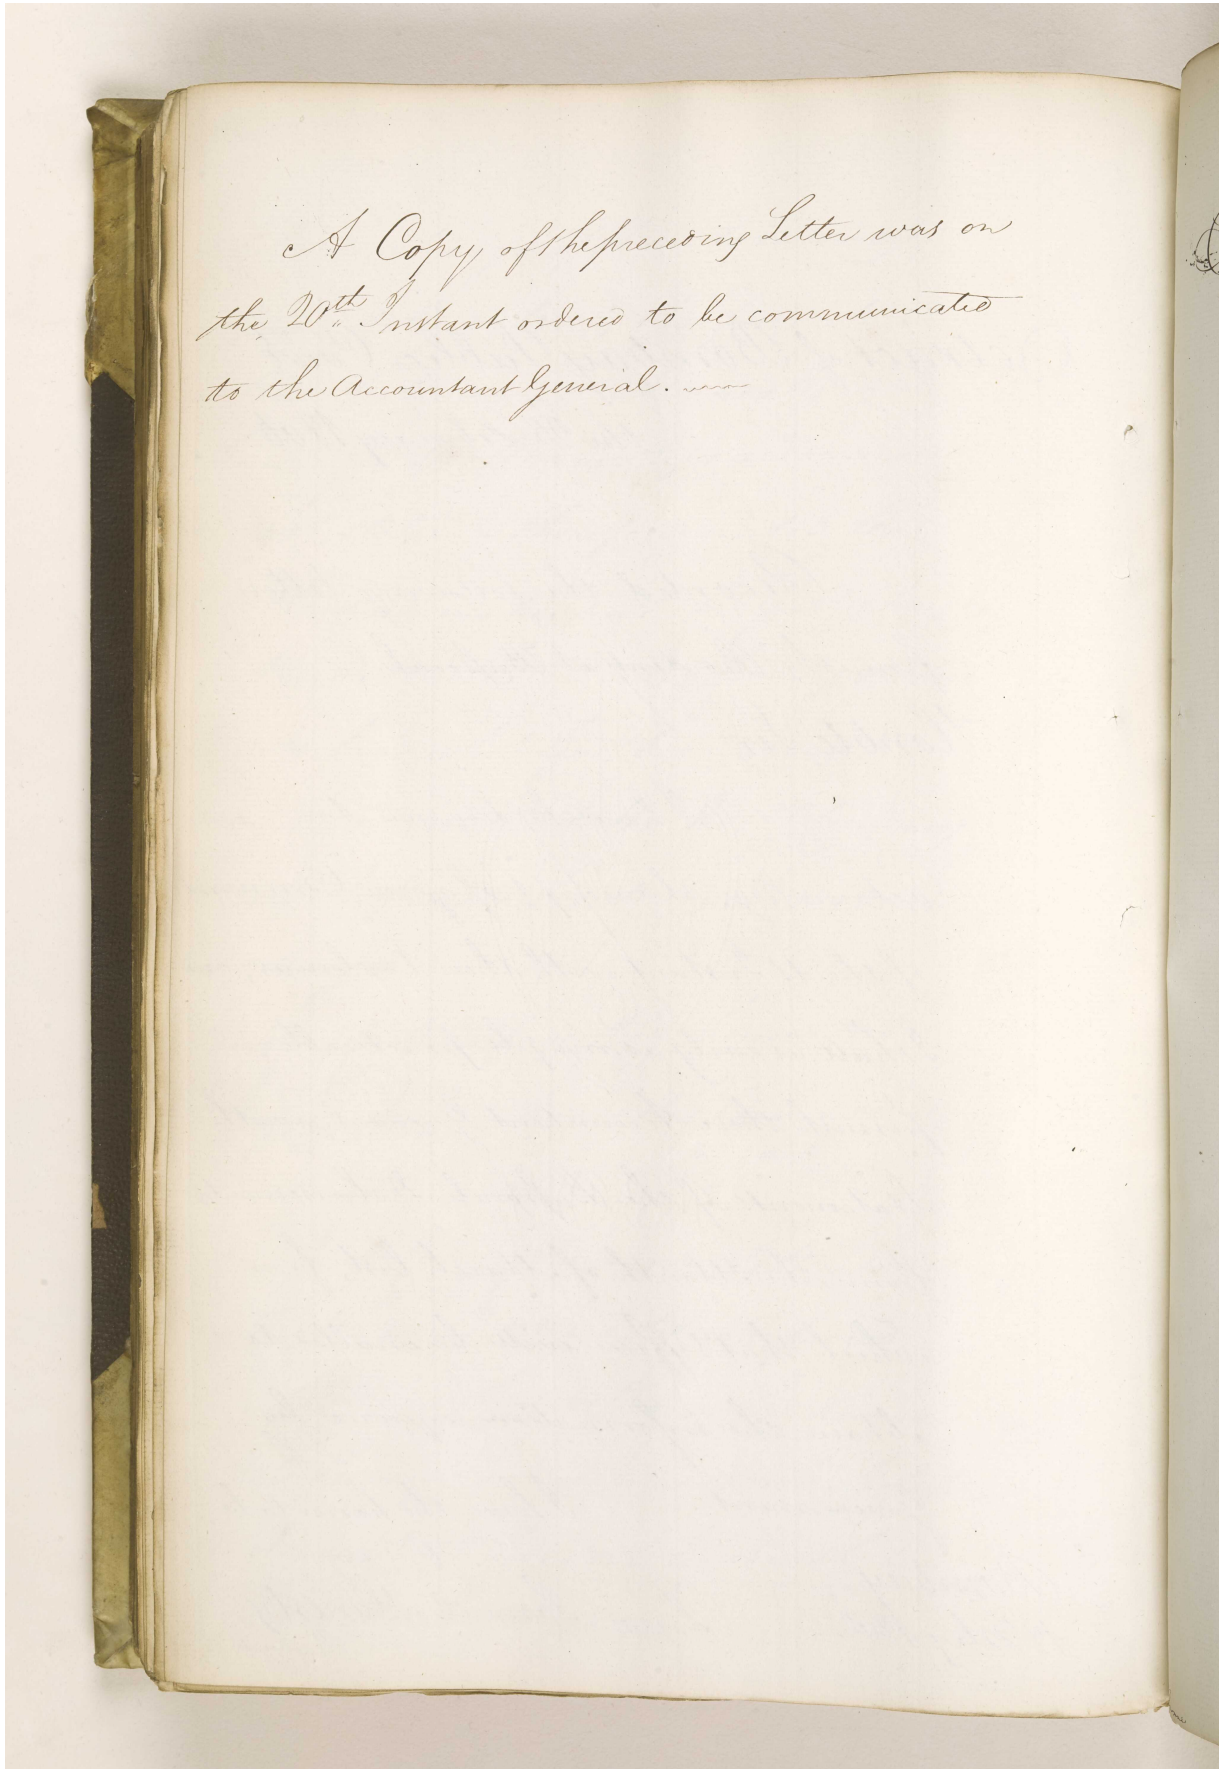 A Copy of the preceding Letter was on
the 20th Instant ordered to be communicated
to the Accountant General.